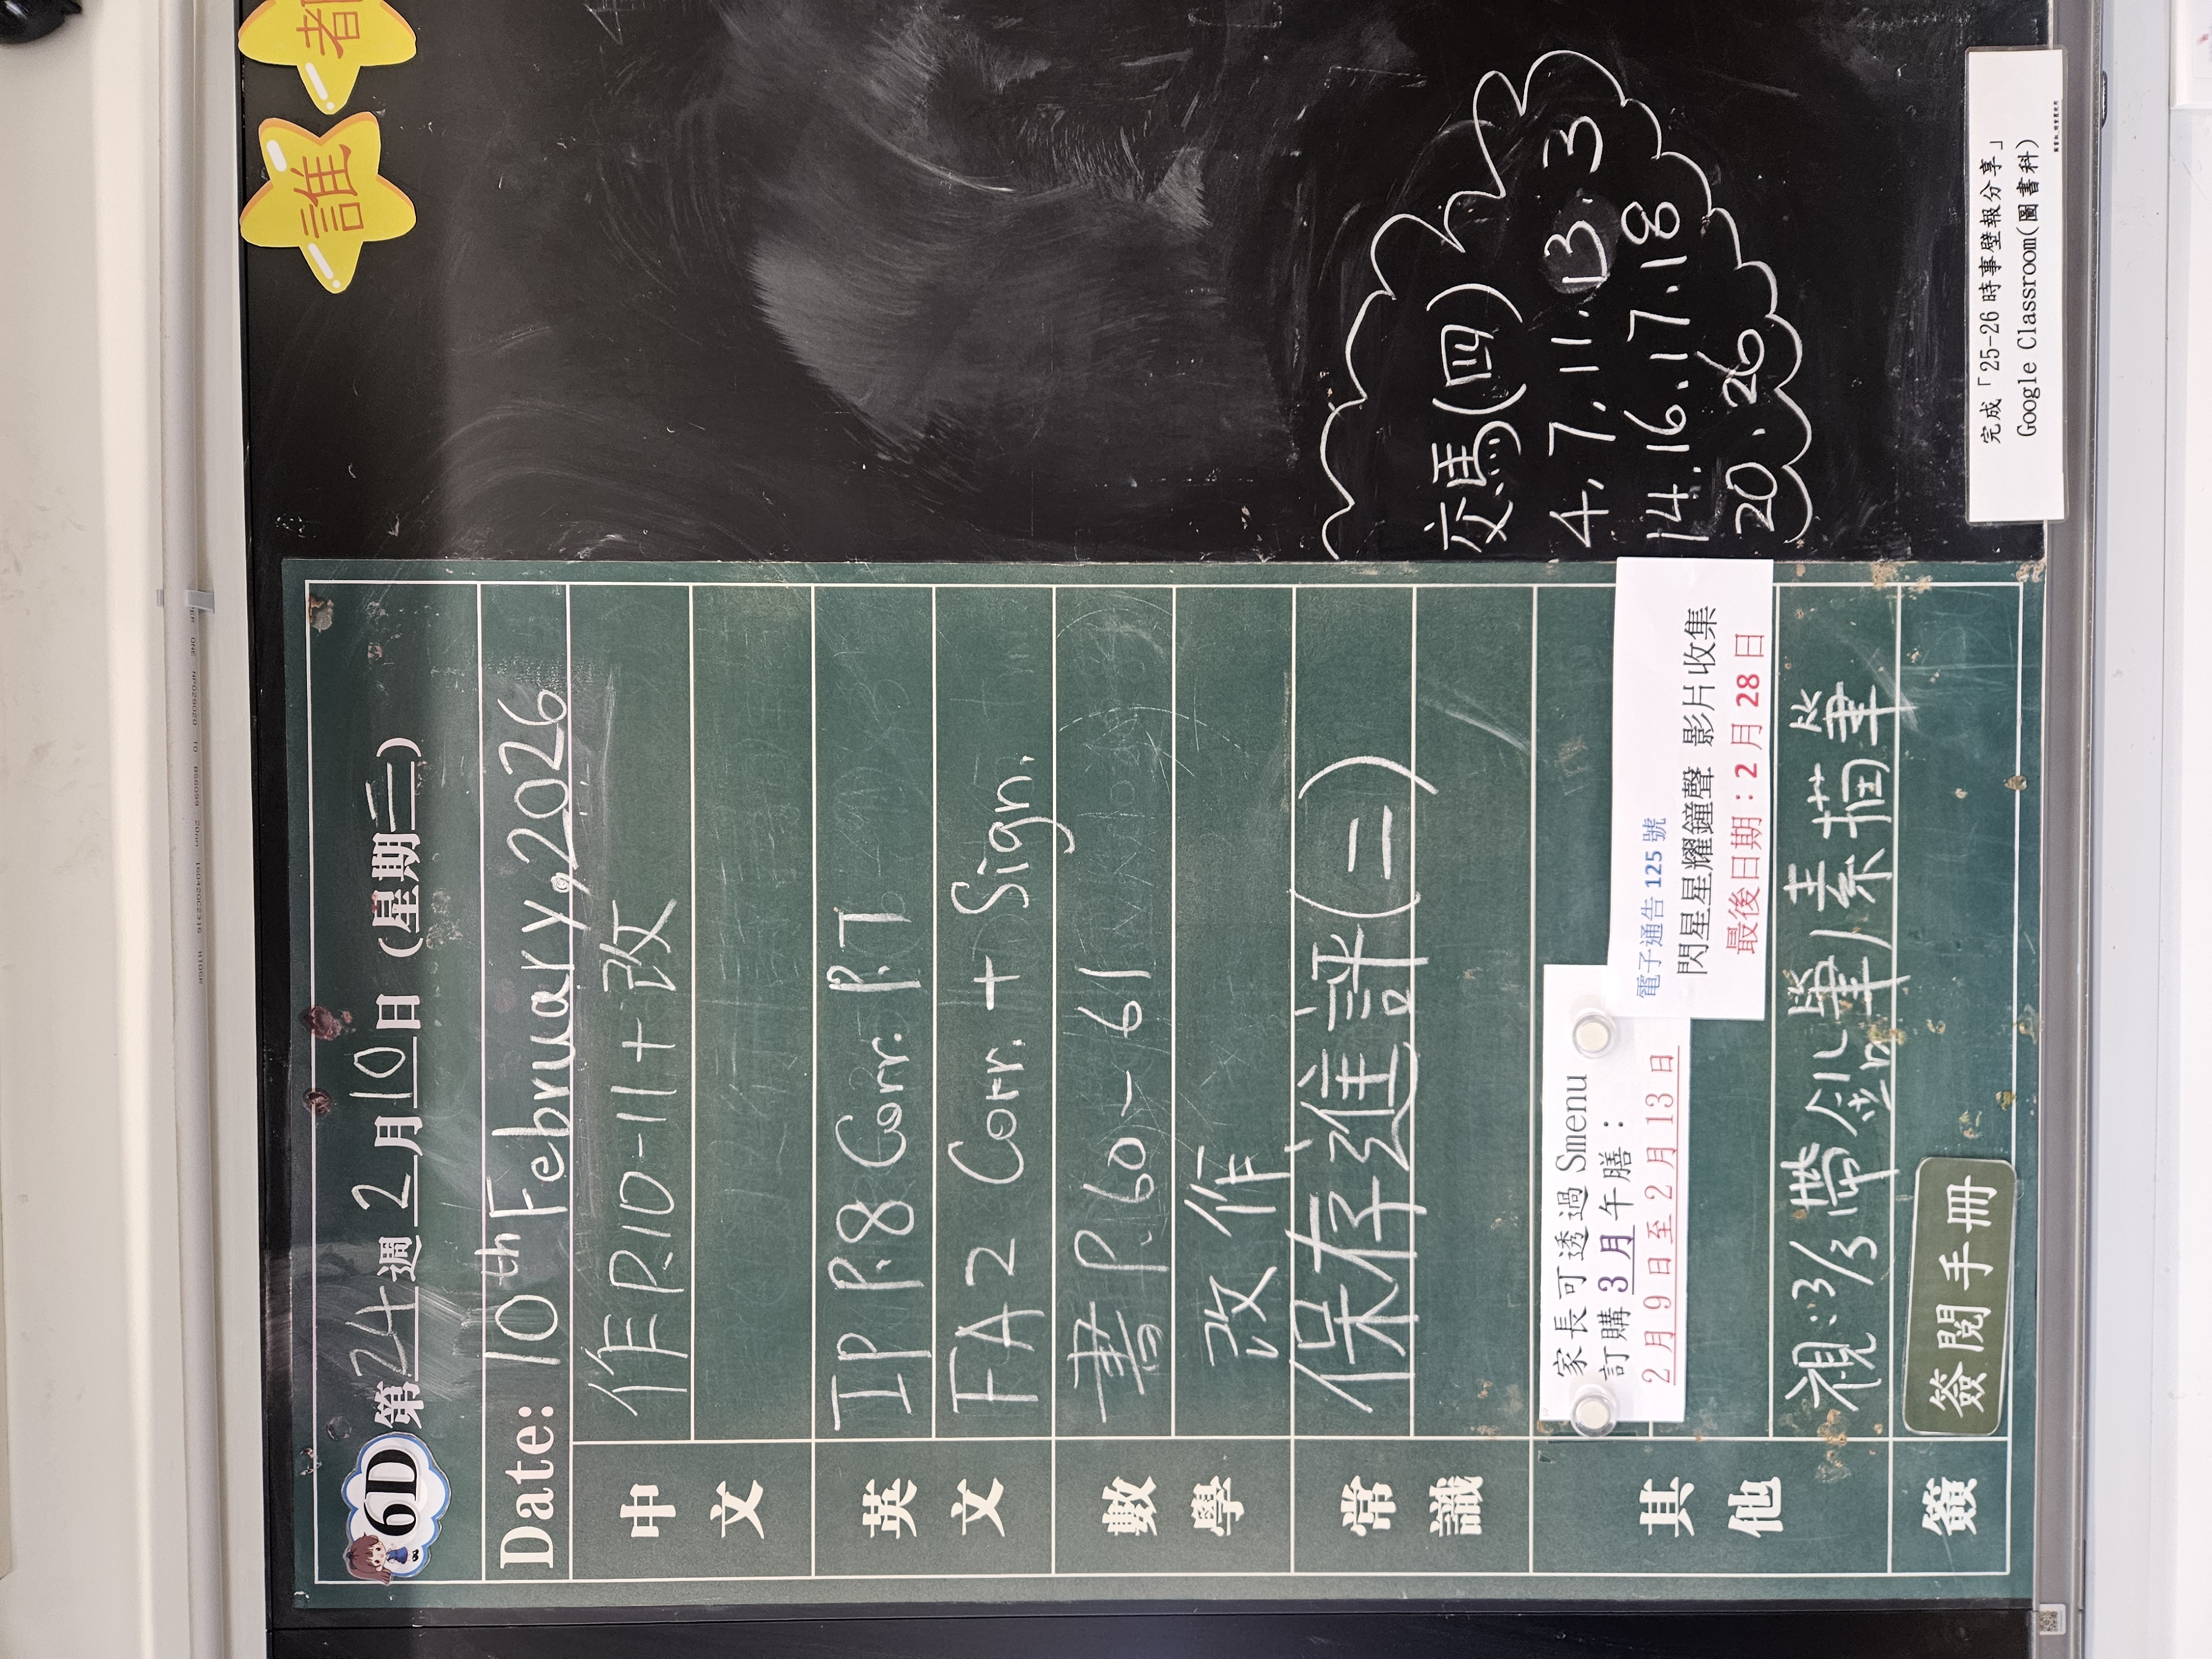 6D 第24週 2月10日 (星期二)
Date: 10th February, 2026
中文
作 P.10-11 + 改
英文
IP P.8 Corr. P.T
FA2 Corr. + Sign.
數學
書 P.60-61
改作
常識
保存進評(二)
其他
家長可透過 Smenu
訂購 3 月午膳：
2月9日至2月13日
電子通告 125 號
閃星星耀鐘聲 影片收集
最後日期：2 月 28 日
視:3/3帶針筆/素描筆
簽
簽閱手冊
誰都
交馬(四)
4, 7, 11. 13. 3
14. 16. 17. 18
20. 26
完成「25-26 時事壁報分享」
Google Classroom(圖書科)